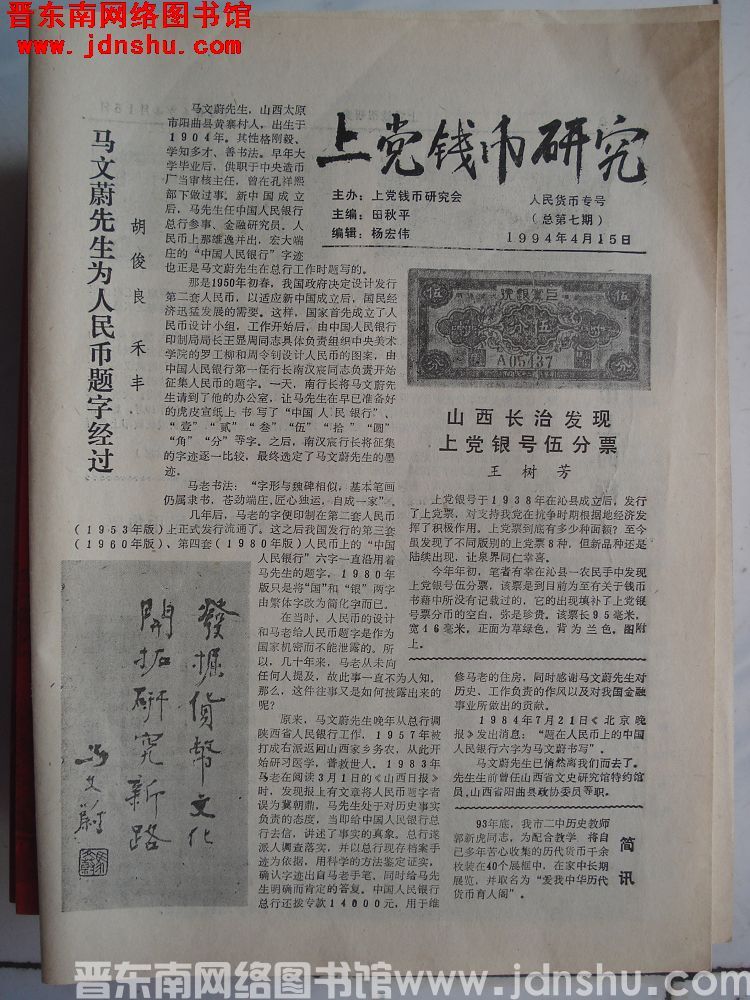 晋东南网络图书馆
www.jdnshu.com
上党钱币研究
主办：上党钱币研究会
主编：田秋平
编辑：杨宏伟
人民货币专号
（总第七期）
1994年4月15日
马文蔚先生为人民币题字经过
胡俊良 禾丰
马文蔚先生，山西太原
市阳曲县黄寨村人，出生于
1904年。其性格刚毅、
学知多才、善书法。早年大
学毕业后，供职于中央造币
厂当审核主任，曾在孔祥熙
部下做过事。新中国成立
后，马先生任中国人民银行
总行参事、金融研究员。人
民币上那雄逸并出，宏大端
庄的“中国人民银行”字迹
也正是马文蔚先生在总行工作时题写的。
那是1950年初春，我国政府决定设计发行
第二套人民币，以适应新中国成立后，国民经
济迅猛发展的需要。这样，国家首先成立了人
民币设计小组，工作开始后，由中国人民银行
印制局局长王昱周同志具体负责组织中央美术
学院的罗工柳和周令钊设计人民币的图案，由
中国人民银行第一任行长南汉宸同志负责开始
征集人民币的题字。一天，南行长将马文蔚先
生请到了他的办公室，让马先生在早已准备好
的虎皮宣纸上书写了“中国人民银行”、
“壹”“贰”“叁”“伍”“拾”“圆”
“角”“分”等字。之后，南汉宸行长将征集
的字迹逐一比较，最终选定了马文蔚先生的墨
迹。
马老书法：“字形与魏碑相似，基本笔画
仍属隶书，苍劲端庄，匠心独运，自成一家”。
几年后，马老的字便印制在第二套人民币
（1953年版）上正式发行流通了。这之后我国发行的第三套
（1960年版）、第四套（1980年版）人民币上的“中国
人民银行”六字一直沿用着
马先生的题字，1980年
版只是将“国”和“银”两字
由繁体字改为简化字而已。
在当时，人民币的设计
和马老给人民币题字是作为
国家机密而不能泄露的。所
以，几十年来，马老从未向
任何人提及，故此事一直不为人知。
那么，这件往事又是如何披露出来的
呢？
原来，马文蔚先生晚年从总行调
陕西省人民银行工作，1957年被
打成右派返回山西家乡务农，从此开
始研习医学，普救世人。1983年
马老在阅读3月1日的《山西日报》
时，发现报上有文章将人民币题字者
误为冀朝鼎，马先生处于对历史事实
负责的态度，当即给中国人民银行总
行去信，讲述了事实的真象。总行遂
派人调查落实，并以总行现存档案手
迹为依据，用科学的方法鉴定证实，
确认字迹出自马老手笔，同时给马先
生明确而肯定的答复。中国人民银行
总行还拨专款14000元，用于维
修马老的住房，同时感谢马文蔚先生对
历史、工作负责的作风以及对我国金融
事业所做出的贡献。
1984年7月21日《北京晚
报》发出消息：“题在人民币上的中国
人民银行六字为马文蔚书写”。
马文蔚先生已悄然离我们而去了。
先生生前曾任山西省文史研究馆特约馆
员，山西省阳曲县政协委员等职。
發掘貨幣文化
開拓研究新路
马文蔚
上党银号
伍分
A05437
山西长治发现
上党银号伍分票
王树芳
上党银号于1938年在沁县成立后，发行
了上党票，对支持我党在抗争时期根据地经济发
挥了积极作用。上党票到底有多少种面额？至今
虽发现了不同版别的上党票8种，但新品种还是
陆续出现，让泉界同仁幸喜。
今年年初，笔者有幸在沁县一农民手中发现
上党银号伍分票，该票是到目前为至有关于钱币
书籍中所没有记载过的，它的出现填补了上党银
号票分币的空白，弥是珍贵。该票长95毫米，
宽16毫米，正面为草绿色，背为兰色。图附
上。
简讯
93年底，我市二中历史教师
郭新虎同志，为配合教学，将自
己多年苦心收集的历代货币千余
枚装在40个展框中，在家中长期
展览，并取名为“爱我中华历代
货币育人阁”。
晋东南网络图书馆www.jdnshu.com